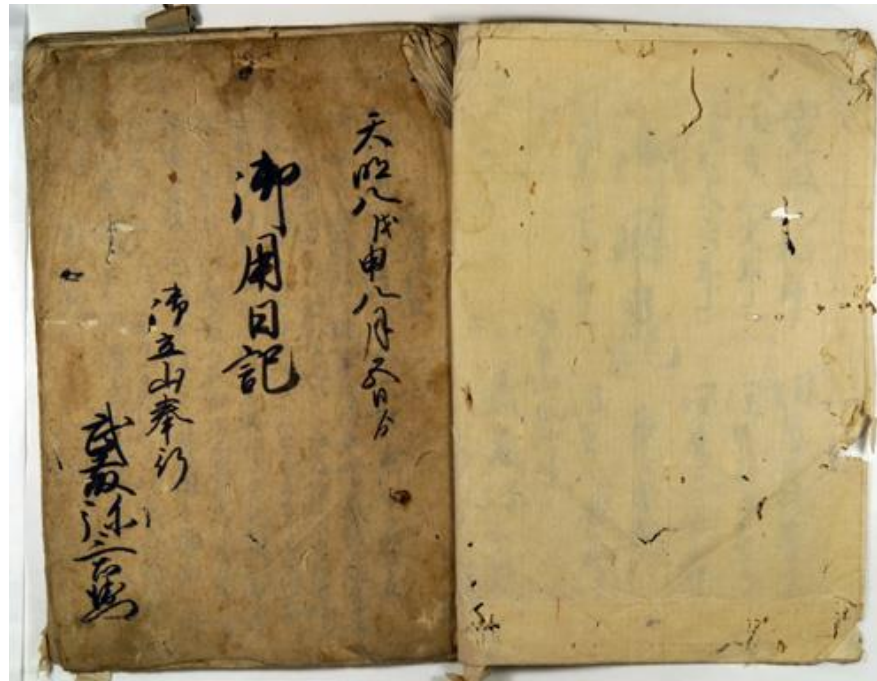 天明八戊申八月五日ゟ
御用日記
御立山奉行
武藪弥